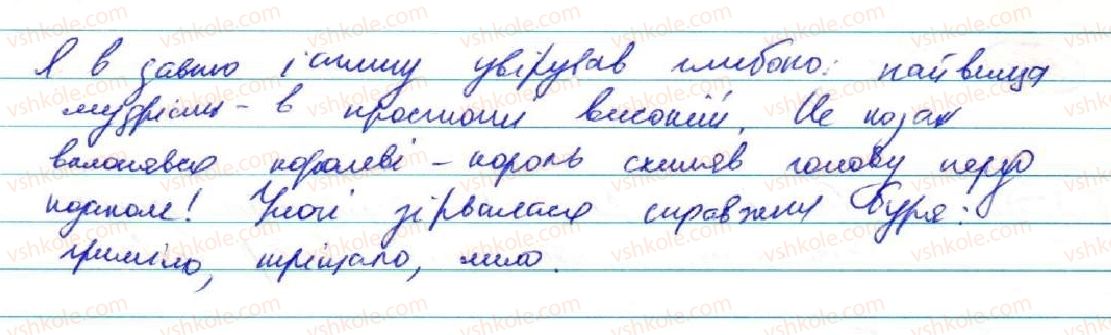 Я в давню істину увірував глибоко: найвища
мудрість - в простоті високій. Не козак
вклонявся королеві - король схиляв голову перед
козаком! Уночі зірвалася справжня буря:
гриміло, тріщало, лило.